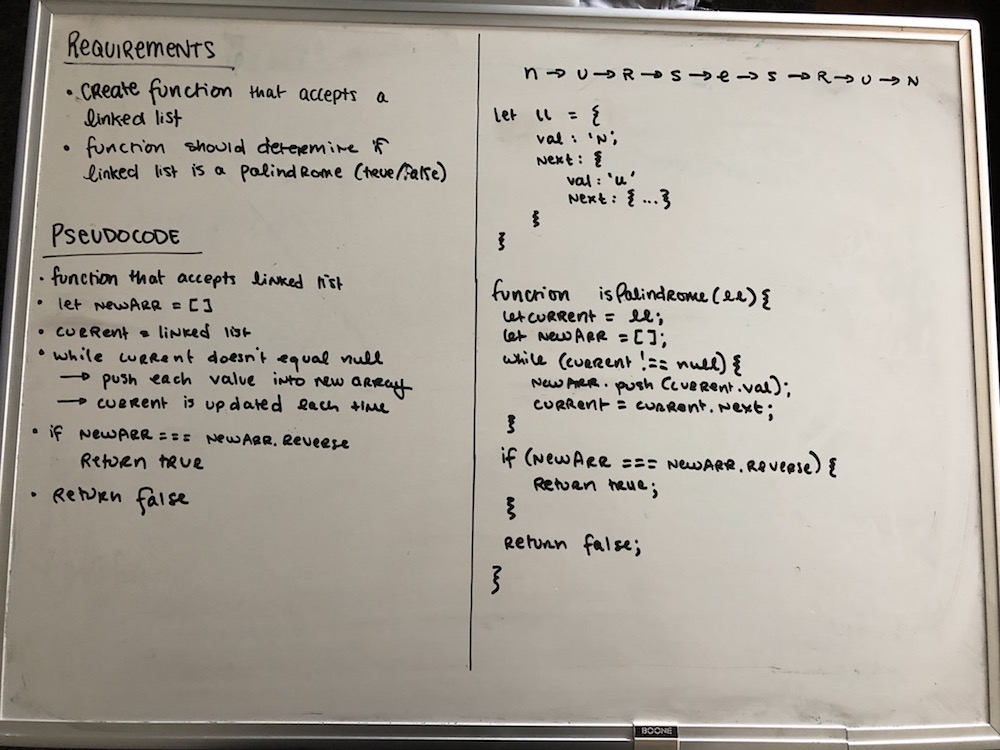 REQUIREMENTS
• CReate function that accepts a
linked list
• function should determine if
linked list is a palindrome (true/false)
PSEUDOCODE
• function that accepts linked list
• let newARR = []
• cuRRent = linked list
• while current doesn't equal null
→ push each value into new array
→ current is updated each time
• if newARR === newARR.Reverse
Return true
• Return false
n → u → R → s → e → s → R → u → N
let ll = {
val: 'N;
Next: {
val: 'u'
Next: {...}
}
}
function isPalindrome(ll){
let cuRRent = ll;
let newARR = [];
while (cuRRent !== null) {
newARR.push(cuRRent.val);
cuRRent = cuRRent.next;
}
if (NewARR === NewARR.Reverse) {
Return true;
}
Return false;
}
BOONE